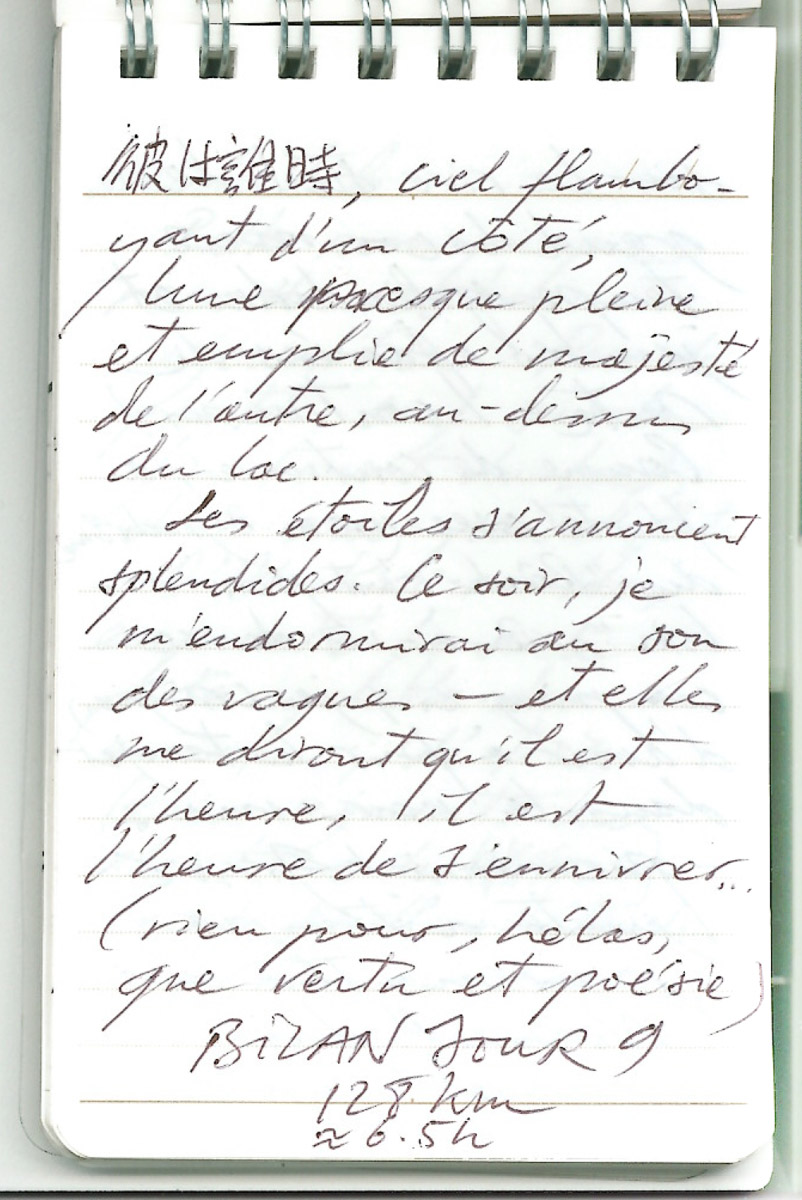 彼は誰時, ciel flambo-
yant d'un côté,
lune presque pleine
et emplie de majesté
de l'autre, au-dessus
du lac.
Les étoiles s'annoncent
splendides. Ce soir, je
m'endormirai au son
des vagues — et elles
me diront qu'il est
l'heure, il est
l'heure de s'ennivrer...
(rien pour, hélas,
que vertu et poésie)
BILAN JOUR 9
128 km
≈ 6.5h